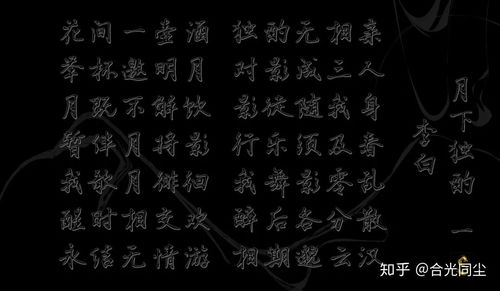 月下独酌 一
李白
花间一壶酒 独酌无相亲
举杯邀明月 对影成三人
月既不解饮 影徒随我身
暂伴月将影 行乐须及春
我歌月徘徊 我舞影零乱
醒时相交欢 醉后各分散
永结无情游 相期邈云汉
知乎 @合光同尘